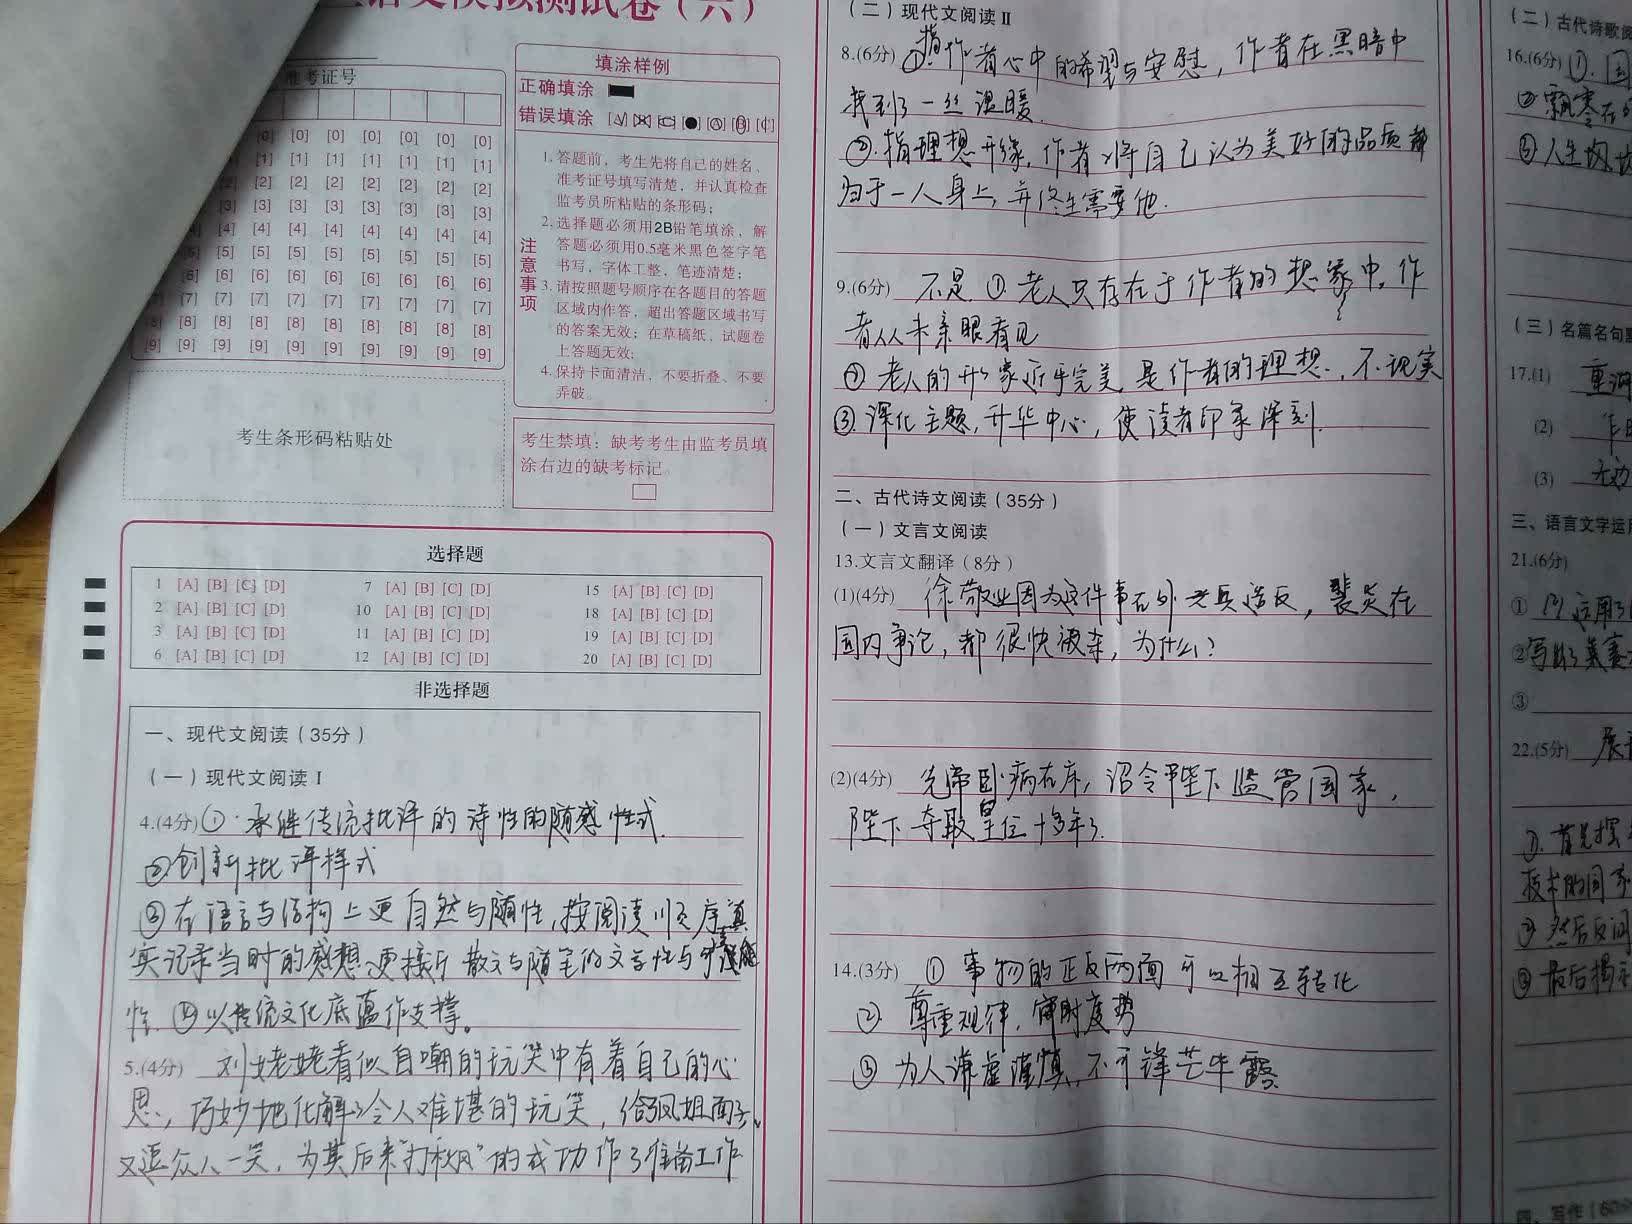 语文模拟测试卷（六）
准考证号
[0] [0] [0] [0] [0] [0] [0]
[1] [1] [1] [1] [1] [1] [1]
[2] [2] [2] [2] [2] [2] [2]
[3] [3] [3] [3] [3] [3] [3]
[4] [4] [4] [4] [4] [4] [4]
[5] [5] [5] [5] [5] [5] [5]
[6] [6] [6] [6] [6] [6] [6]
[7] [7] [7] [7] [7] [7] [7]
[8] [8] [8] [8] [8] [8] [8] [8]
[9] [9] [9] [9] [9] [9] [9] [9]
填涂样例
正确填涂
错误填涂
注意事项
1. 答题前，考生先将自己的姓名、
准考证号填写清楚，并认真检查
监考员所粘贴的条形码；
2. 选择题必须用2B铅笔填涂，解
答题必须用0.5毫米黑色签字笔
书写，字体工整，笔迹清楚；
3. 请按照题号顺序在各题目的答题
区域内作答，超出答题区域书写
的答案无效；在草稿纸、试题卷
上答题无效；
4. 保持卡面清洁，不要折叠、不要
弄破。
考生条形码粘贴处
考生禁填：缺考考生由监考员填
涂右边的缺考标记。
选择题
1 [A] [B] [C] [D] 7 [A] [B] [C] [D] 15 [A] [B] [C] [D]
2 [A] [B] [C] [D] 10 [A] [B] [C] [D] 18 [A] [B] [C] [D]
3 [A] [B] [C] [D] 11 [A] [B] [C] [D] 19 [A] [B] [C] [D]
6 [A] [B] [C] [D] 12 [A] [B] [C] [D] 20 [A] [B] [C] [D]
非选择题
一、现代文阅读（35分）
（一）现代文阅读Ⅰ
4.(4分) ①承继传统批评的诗性的随感性式.
②创新批评样式
③在语言与结构上更自然与随性,按阅读顺序真
实记录当时的感想,更接近散文与随笔的文学性与
性. ④以传统文化底蕴作支撑。
5.(4分) 刘姥姥看似自嘲的玩笑中有着自己的心
思，巧妙地化解了令人难堪的玩笑，给凤姐面子，
又逗众人一笑，为其后来"打秋风"的成功作了准备工作
（二）现代文阅读Ⅱ
8.(6分) ①指作者心中的希望与安慰，作者在黑暗中
找到了一丝温暖.
②.指理想形象,作者将自己认为美好的品质都
归于一人身上,并终生需要他.
9.(6分) 不是.①老人只存在于作者的想象中,作
者从未亲眼看见
②老人的形象近乎完美,是作者的理想,不现实
③.深化主题,升华中心,使读者印象深刻.
二、古代诗文阅读（35分）
（一）文言文阅读
13.文言文翻译（8分）
(1)(4分) 徐敬业因为这件事在外兴兵造反，裴炎在
国内争论，都很快被杀，为什么?
(2)(4分) 先帝卧病在床，诏令陛下监管国家，
陛下夺取皇位十多年了.
14.(3分) ①事物的正反两面可以相互转化
②.尊重规律,审时度势
③为人谦虚谨慎,不可锋芒毕露.
（二）古代诗歌阅
16.(6分) ①.
②飘零在
③人生坎坷
（三）名篇名句默
17.(1)
(2)
(3) 无边
三、语言文字运用
21.(6分)
① 运用了
②写出了
③
22.(5分)
①.首先摆
技术的同
②然后反问
③最后揭示
四、写作（60